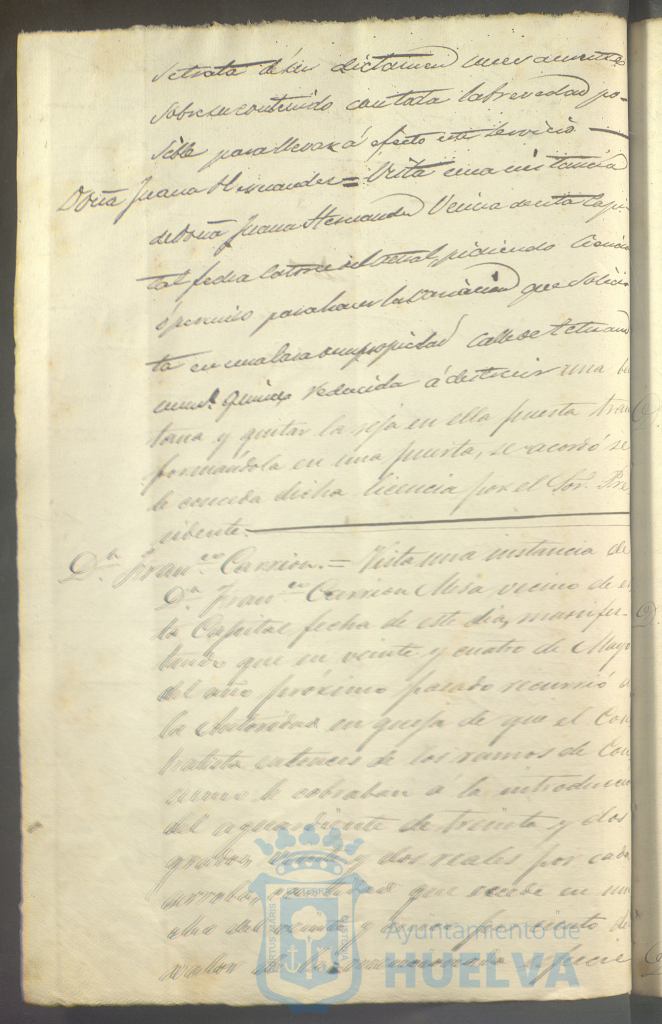 se trata dé su dictamen nuevamente
sobre su contenido con toda la brevedad po-
sible para llevar á efecto este servicio
Doña Juana Hernandez = Vista una instancia
de Doña Juana Hernandez Vecina de esta Capi-
tal fecha catorce del actual, pidiendo licencia
ó permiso para hacer la variacion que solici
ta en una casa de su propiedad calle de Tetuan
num.º quince, reducida á destruir una be
tana y quitar la reja en ella puesta tran
formándola en una puerta, se acordó se
le conceda dicha licencia por el Sor. Pre
sidente.
D.n Fran.co Carrion. = Vista una instancia de
D.n Fran.co Carrion Mesa vecino de es
ta Capital fecha de este dia, manifes-
tando que en veinte y cuatro de Mayo
del año próximo pasado recurrió a
la Autoridad en queja de que el Con
tratista entonces de los ramos de Con
sumos le cobraban á la introduccion
del aguardiente de treinta y dos
grados, veinte y dos reales por cada
arroba, que escede en un
por ciento de
valor de la especie
Ayuntamiento de
HUELVA